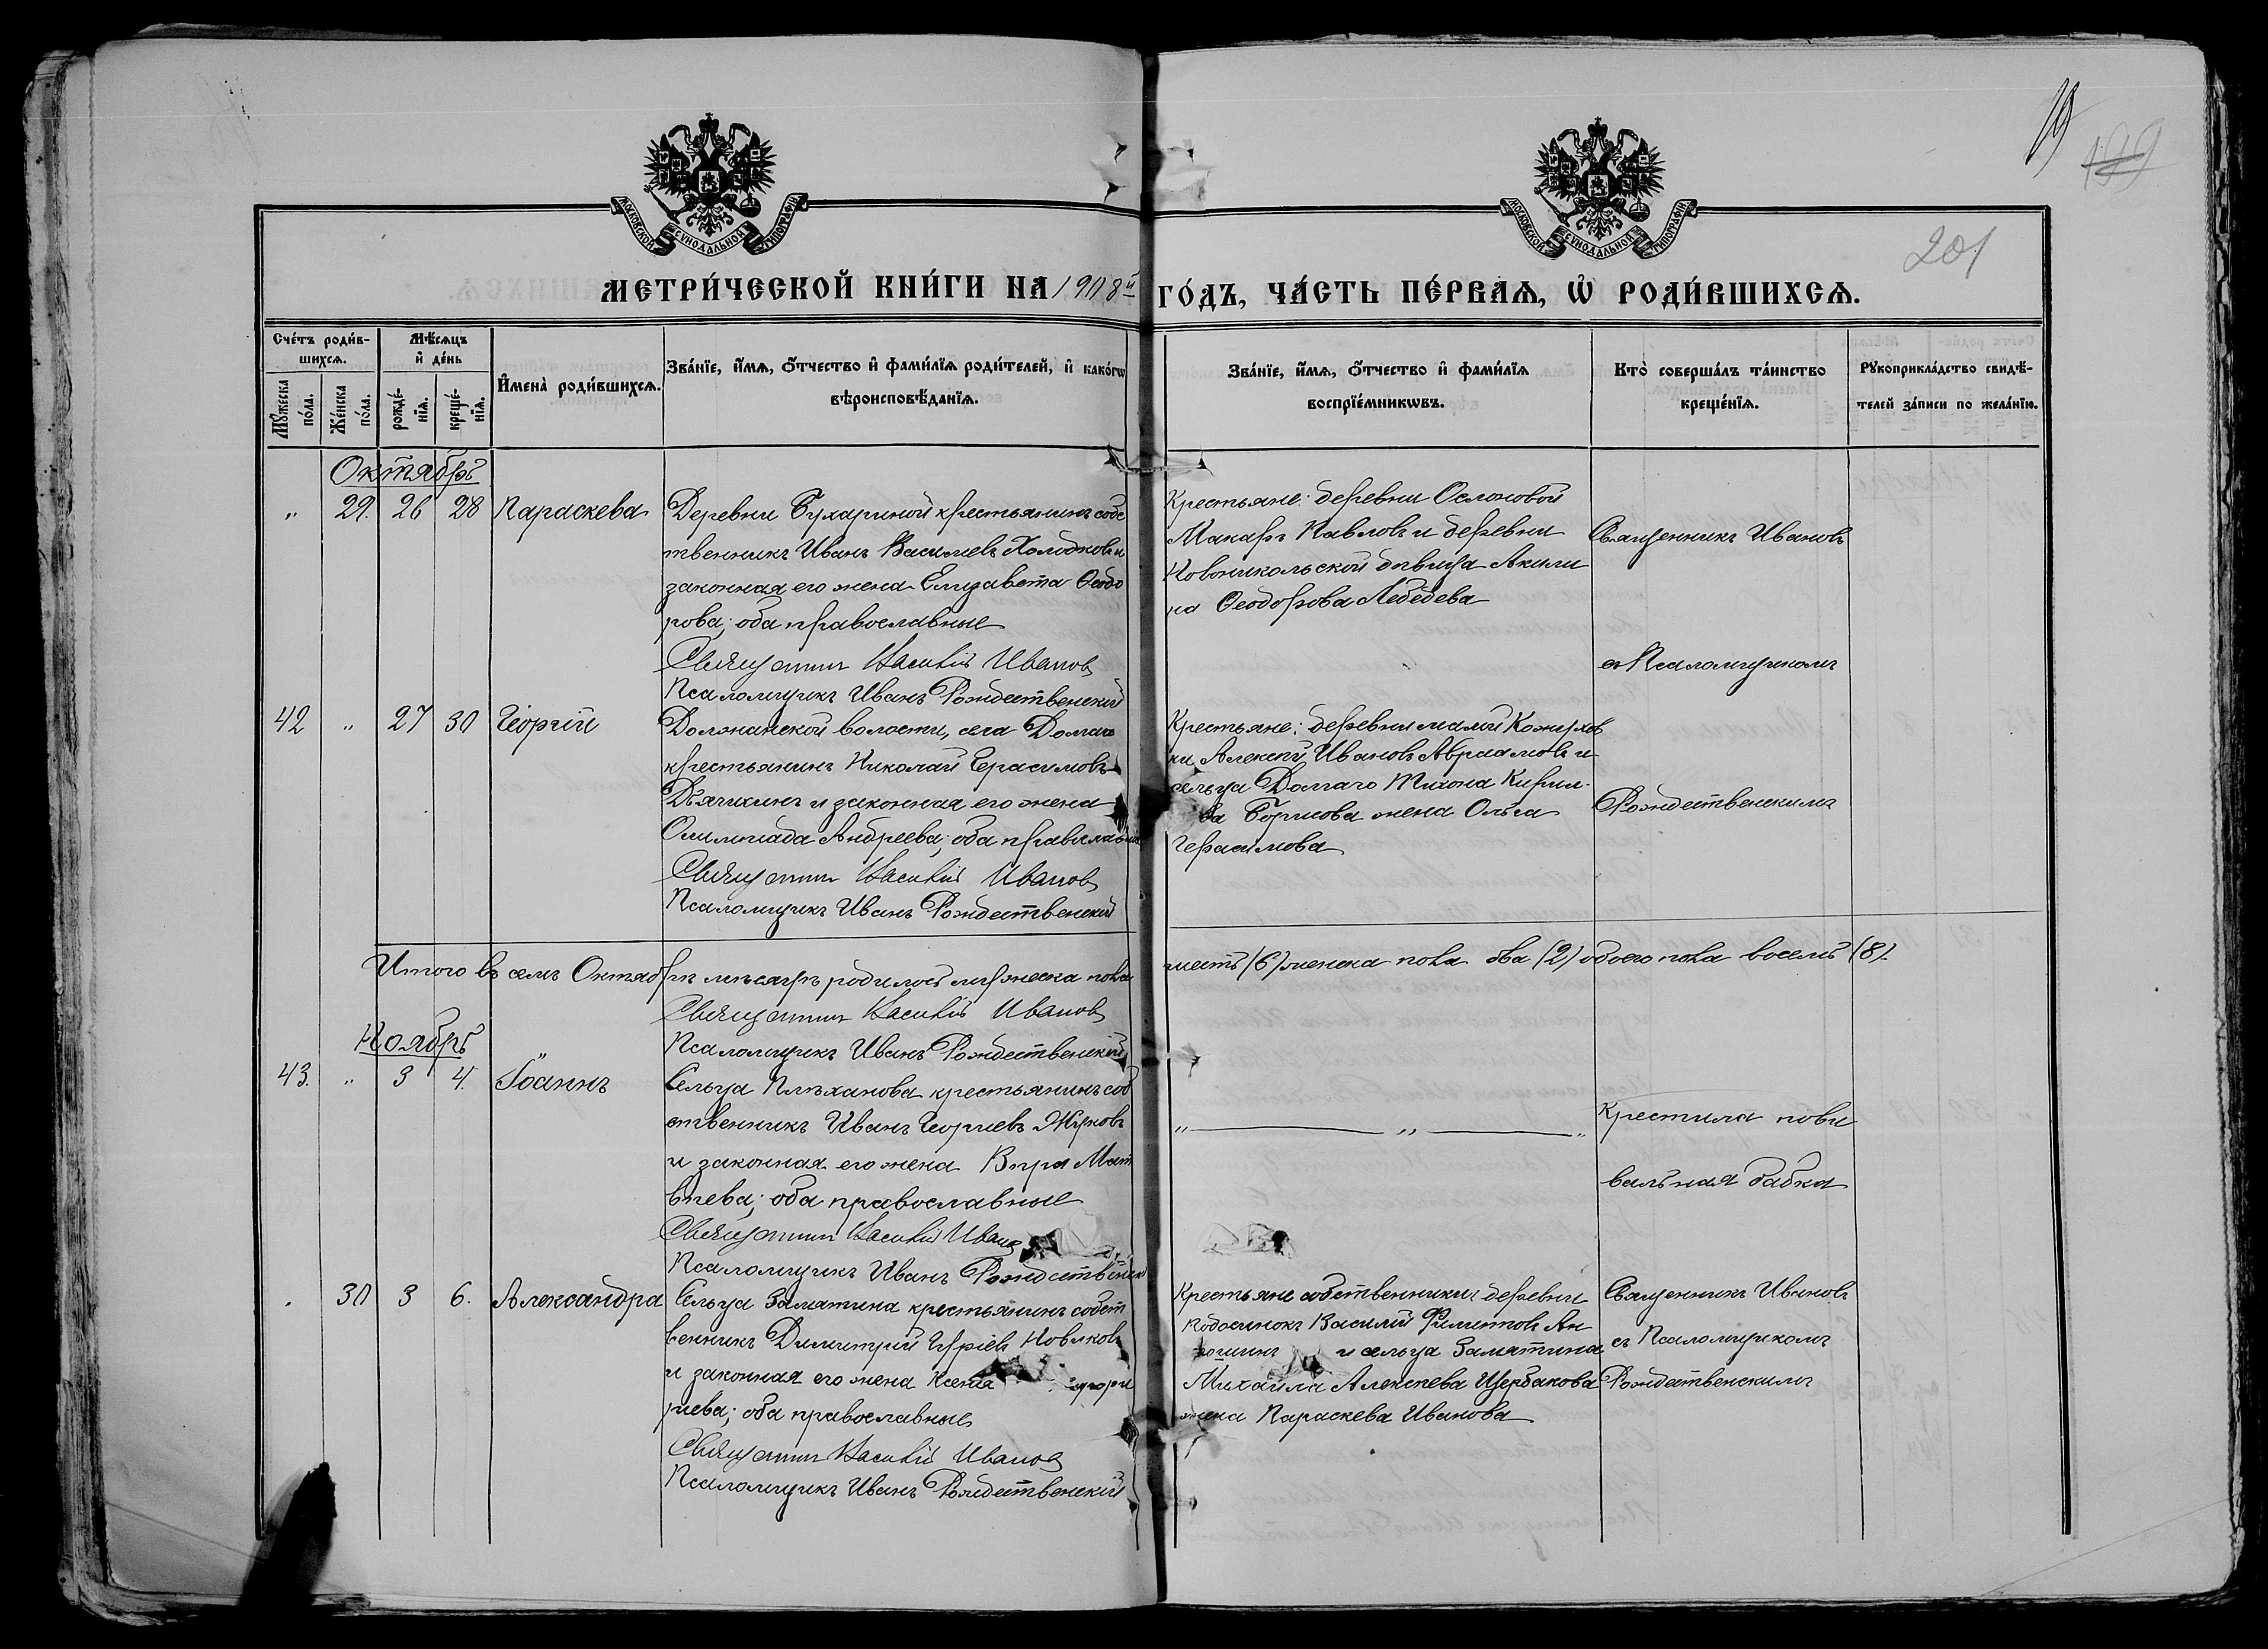 199
201
МОСКОВСКОЙ СѴНОДАЛЬНОЙ ТИПОГРАФІИ
МОСКОВСКОЙ СѴНОДАЛЬНОЙ ТИПОГРАФІИ
МЕТРИ́ЧЕСКОЙ КНИ́ГИ НА 1908й ГО́ДЪ, ЧА́СТЬ ПЕ́РВАѦ, Ѡ҆ РОДИ́ВШИХСѦ.
Сче́тъ роди́в-
шихсѧ.
Мѹ́жеска по́ла.
Же́нска по́ла.
Мѣ́сѧцъ
и҆ де́нь
рожде́-
нїѧ.
креще́-
нїѧ.
И҆мена̀ роди́вшихсѧ.
Зва́нїе, и҆́мѧ, ѻ҆́тчество и҆ фами́лїѧ роди́телей, и҆ како́гѡ
вѣроисповѣ́данїѧ.
Зва́нїе, и҆́мѧ, ѻ҆́тчество и҆ фами́лїѧ
воспрїе́мникѡвъ.
Кто̀ соверша́лъ та́инство
креще́нїѧ.
Рꙋкоприкла́дство свидѣ́-
телей за́писи по жела́нїю.
Октябрь
„ 29. 26 28 Параскева
Деревни Бухариной крестьянинъ собс
твенникъ Иванъ Васильевъ Холодковъ и
законная его жена Елизавета Ѳеодо
рова; оба православные
Священникъ Василій Ивановъ
Псаломщикъ Иванъ Рождественскій
Крестьяне: деревни Ослоновой
Макаръ Павловъ и деревни
Новоникольской дѣвица Акили
на Ѳеодорова Лебедева
Священникъ Ивановъ
съ Псаломщикомъ
Рождественскимъ
42 „ 27 30 Георгій
Должанской волости, села Долгаго
крестьянинъ Николай Герасимовъ
Дьячихинъ и законная его жена
Олимпіада Андреева; оба православн
Священникъ Василій Ивановъ
Псаломщикъ Иванъ Рождественскій
Крестьяне: деревни малой Кожухов
ки Алексѣй Ивановъ Авраамовъ и
сельца Долгаго Тихона Кирил-
ва Борисова жена Ольга
Герасимова
Итого въ семъ Октябрѣ мѣсяцѣ родилось мужеска пола шесть (6) женска пола два (2) обоего пола восемь (8).
Священникъ Василій Ивановъ
Псаломщикъ Иванъ Рождественскій
Ноябрь
43. „ 3 4. Іоаннъ
Сельца Плѣханова крестьянинъ соб
ственникъ Иванъ Георгіевъ Жуковъ
и законная его жена Вѣра Мат
вѣева; оба православные
Священникъ Василій Ивано
Псаломщикъ Иванъ Рождественск
„ „ „
Крестила пови
вальная бабка
30 3 6. Александра
Сельца Заматина крестьянинъ собст
венникъ Димитрій Гуріевъ Новиковъ
и законная его жена Ксенія
ріева; оба православные
Священникъ Василій Ивановъ
Псаломщикъ Иванъ Рождественскій
Крестьяне собственники: деревни
Подосинокъ Василій Филиповъ Ан
и сельца Заматина
Михаила Алексѣева Щербакова
жена Параскева Иванова
Священникъ Ивановъ
съ Псаломщикомъ
Рождественскимъ